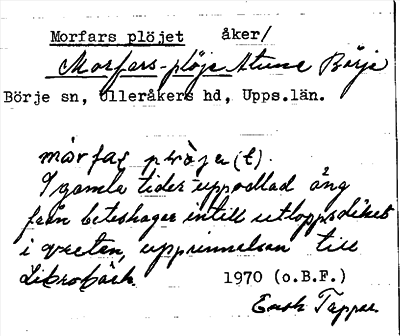 Morfars plöjet åker/
Morfars-plöje Atuna Börje
Börje sn, Ulleråkers hd, Upps.län.
mórfas plòje(t).
I gamla tider uppodlad äng
från beteshagar intill utloppsdiket
i vreten, upprinnelsen till
Librobäck. 1970 (o.B.F.)
Erik Tappar